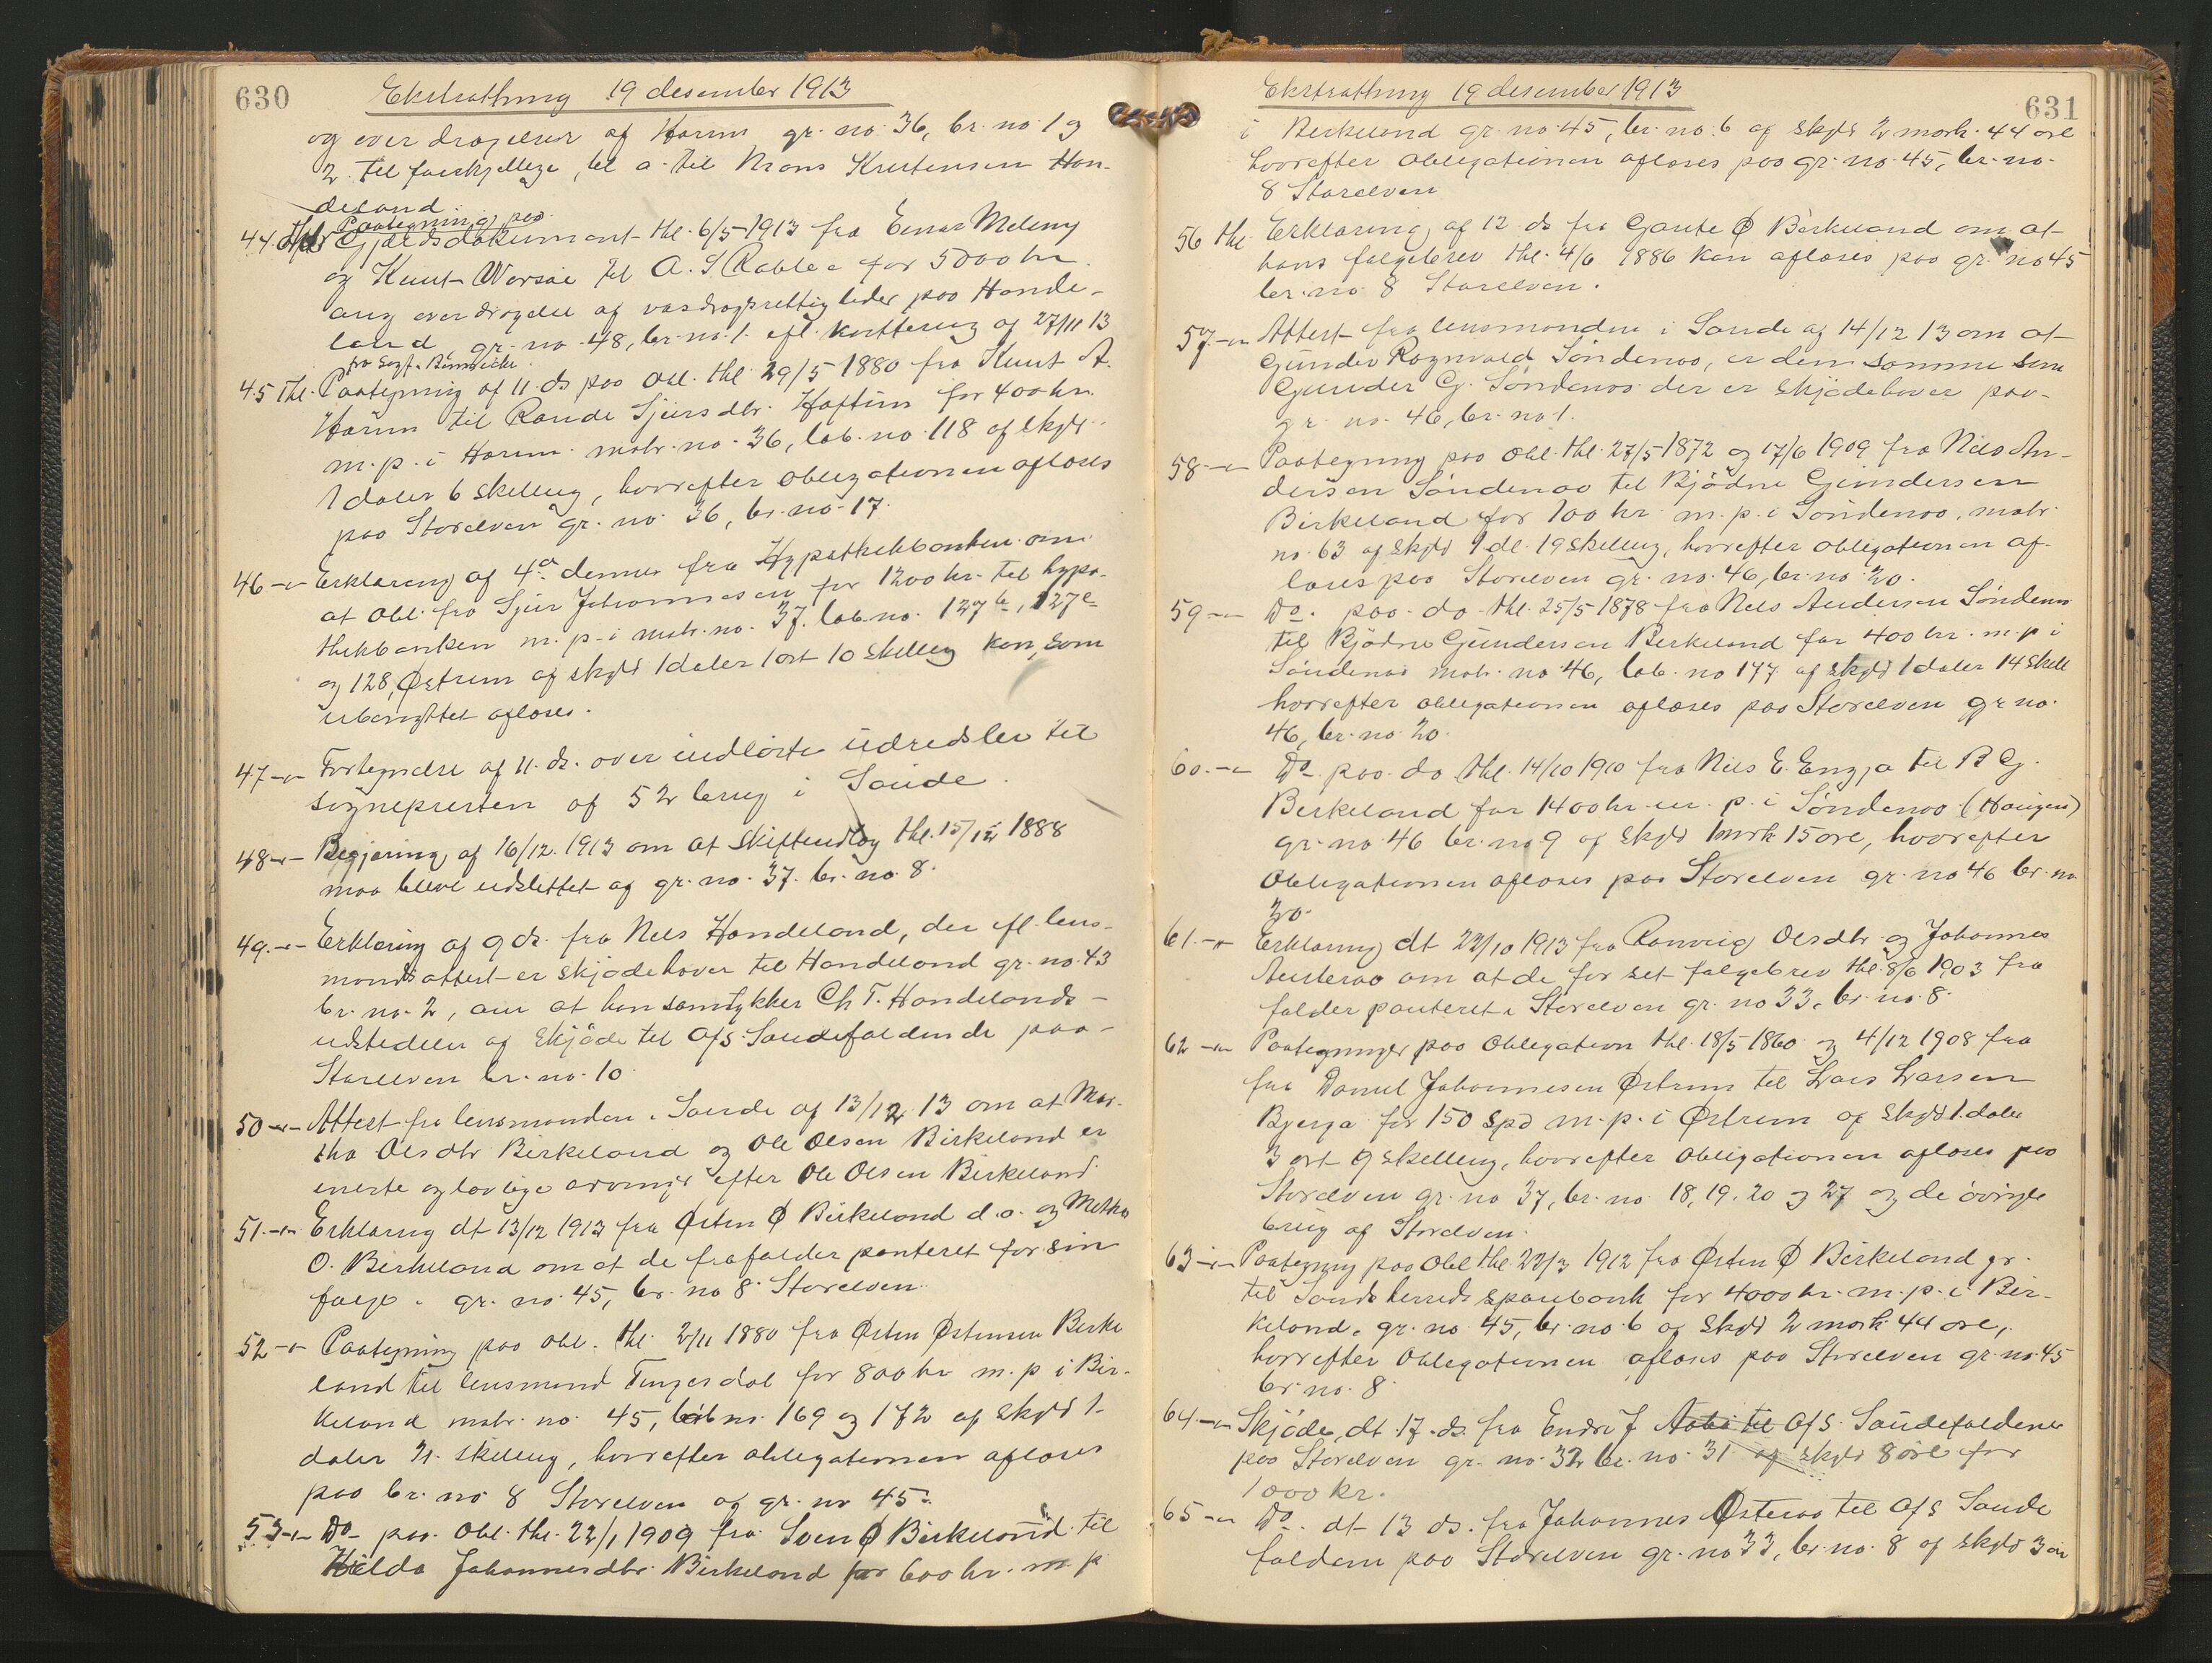 630
Ekstrathing 19 desember 1913
og overdragelser af Harim gr. no. 36, br. no. 1 og
2 til forskjellige, bl a. til Mons Kristensen Han-
deland.
Paategning paa
44. thl Gjældsdokument thl. 6/5-1913 fra Einar Meling
og Knut Worsøe til A. S. Rabbe for 5000 kr.
ang overdragelse af vasdragsrettigheder paa Hande-
land, gr. no. 48, br. no. 1. efl. kvittering af 27/11 13
fra sagf. Bennische
45 thl. Paategning af 11. ds paa obl. thl. 29/5 1880 fra Knut A.
Harim til Rande Sjursdtr. Haftun for 400 kr.
m. p. i Harim matr. no. 36, løb. no. 118 af skyld
1 daler 6 skilling, hvorefter obligationen afløses
paa Storelven gr. no. 36, br. no. 17.
46 -"- Erklæring af 4de dennes fra Hypothekbanken om
at obl. fra Sjur Johannesen for 1200 kr. til hypo-
thekbanken m. p. i matr. no. 37. løb. no. 127b, 127c
og 128, Østrem af skyld 1 daler 1 ort 10 skilling kan, som
ubenyttet afløses.
47 -"- Fortegnelse af 11. ds. over indløste udredsler til
sognepresten af 52 brug i Saude.
48 -"- Begjæring af 16/12. 1913 om at skifteudlæg thl. 15/12 1888
maa blive udslettet af gr. no. 37. br. no. 8.
49. -"- Erklæring af 9 ds. fra Nils Handeland, der efl. lens-
mands attest er skjødehaver til Handeland gr. no. 43
br. no. 2, om at han samtykker Ch T. Handelands
udstedelse af skjøde til A/S. Saudefaldende paa
Storelven br. no. 10.
50 -"- Attest fra lensmanden i Saude af 13/12 13 om at Mar-
tha Olsdtr Birkeland og Ole Olsen Birkeland er
eneste og lovlige arvinger efter Ole Olsen Birkeland.
51. -"- Erklæring dt 13/12 1913 fra Østen Ø Birkeland d. æ. og Metha
O. Birkeland om at de frafalder panteret for sin
følge i gr. no. 45, br. no 8. Storelven.
52 -"- Paategning paa obl. thl. 2/11 1880 fra Østen Østensen Birke
land til lensmand Tengesdal for 800 kr m. p i Bir-
keland matr. no. 45, løb no. 169 og 172 af skyld 1
daler 21. skilling, hvorefter obligationen afløses
paa br. no 8 Storelven af gr. no 45.
53 -"- Do paa obl. thl. 22/1 1909 fra Sven Ø Birkeland til
Hilda Johannesdtr. Birkeland for 600 kr. m. p
631
Ekstrathing 19 desember 1913
i Birkeland gr. no. 45, br. no. 6 af skyld 2 mark. 44 øre
hvorefter obligationen afløses paa gr. no. 45, br. no.
8 Storelven
56 thl. Erklæring af 12 ds fra Gaute Ø Birkeland om at
hans følgebrev thl. 4/6 1886 kan afløses paa gr. no 45
br. no 8 Storelven.
57 -"- Attest fra lensmanden i Saude af 14/12 13 om at
Gunder Ragnvald Søndenaa, er den samme som
Gunder G. Søndenaa der er skjødehaver paa
gr. no. 46, br. no 1.
58. -"- Paategning paa obl. thl. 27/5 1872 og 17/6 1909 fra Nils An-
dersen Søndenaa til Bjødne Gundersen
Birkeland for 100 kr m. p. i Søndenaa, matr.
no. 63 af skyld 1 dl. 19 skilling, hvorefter obligationen af
løses paa Storelven gr. no. 46, br. no 20.
59 -"- Do. paa do thl. 25/5 1878 fra Nils Andersen Søndenaa
til Bjødne Gundersen Birkeland for 400 kr. m. p i
Søndenaa matr. no 46, løb. no 177 af skyld 1 daler 14 skill
hvorefter obligationen afløses paa Storelven gr no.
46, br. no 20.
60. -"- Do paa do thl. 14/10 1910 fra Nils E. Engja til B G.
Birkeland for 1400 kr. m. p. i Søndenaa (Haugen)
gr. no 46 br. no 9 af skyld 1 mrk 15 øre, hvorefter
obligationen afløses paa Storelven gr. no 46 br. no
20.
61. -"- Erklæring dt 22/10 1913 fra Ranveig Olsdtr og Johannes
Austeraa om at de for set følgebrev thl. 8/6 1903 fra
falder panteret i Storelven gr. no 33, br. no. 8.
62 -"- Paategninger paa obligation thl. 18/5 1860 og 4/12 1908 fra
fra Daniel Johannesen Østrem til Lars Larsen
Bjerga for 150 spd m. p. i Østrem af skyld 1. daler
3 ort 9 skilling, hvorefter obligationen afløses paa
Storelven gr. no 37, br. no. 18, 19. 20 og 27 og de øvrige
brug af Storelven.
63 -"- Paategning paa obl thl. 22/3 1912 fra Østen Ø Birkeland yr.
til Sauda herreds sparebank for 4000 kr. m. p. i Bir-
keland. gr. no. 45, br. no. 6 af skyld 2 mark 44 øre,
hvorefter obligationen afløses paa Storelven gr. no. 45
br. no. 8.
64 -"- Skjøde, dt. 17. ds. fra Endre J Aabø til A/S. Saudefaldene
paa Storelven gr. no. 32 br. no. 31 af skyld 8 øre for
1000 kr.
65 -"- Do. dt 13 ds. fra Johannes Østeraa til A/S Saude
faldene paa Storelven gr. no 33, br. no. 8 af skyld 3 øre